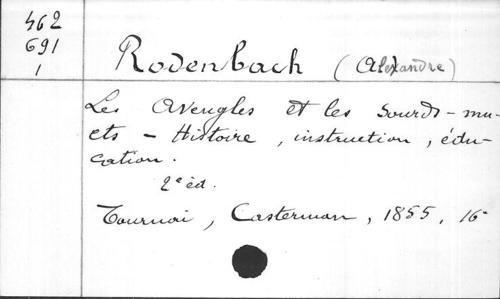 462
691
1
Rodenbach (Alexandre)
Les Aveugles et les Sourds-mu-
ets - Histoire, instruction, édu-
cation.
2e éd.
Tournai, Casterman, 1855, 16°